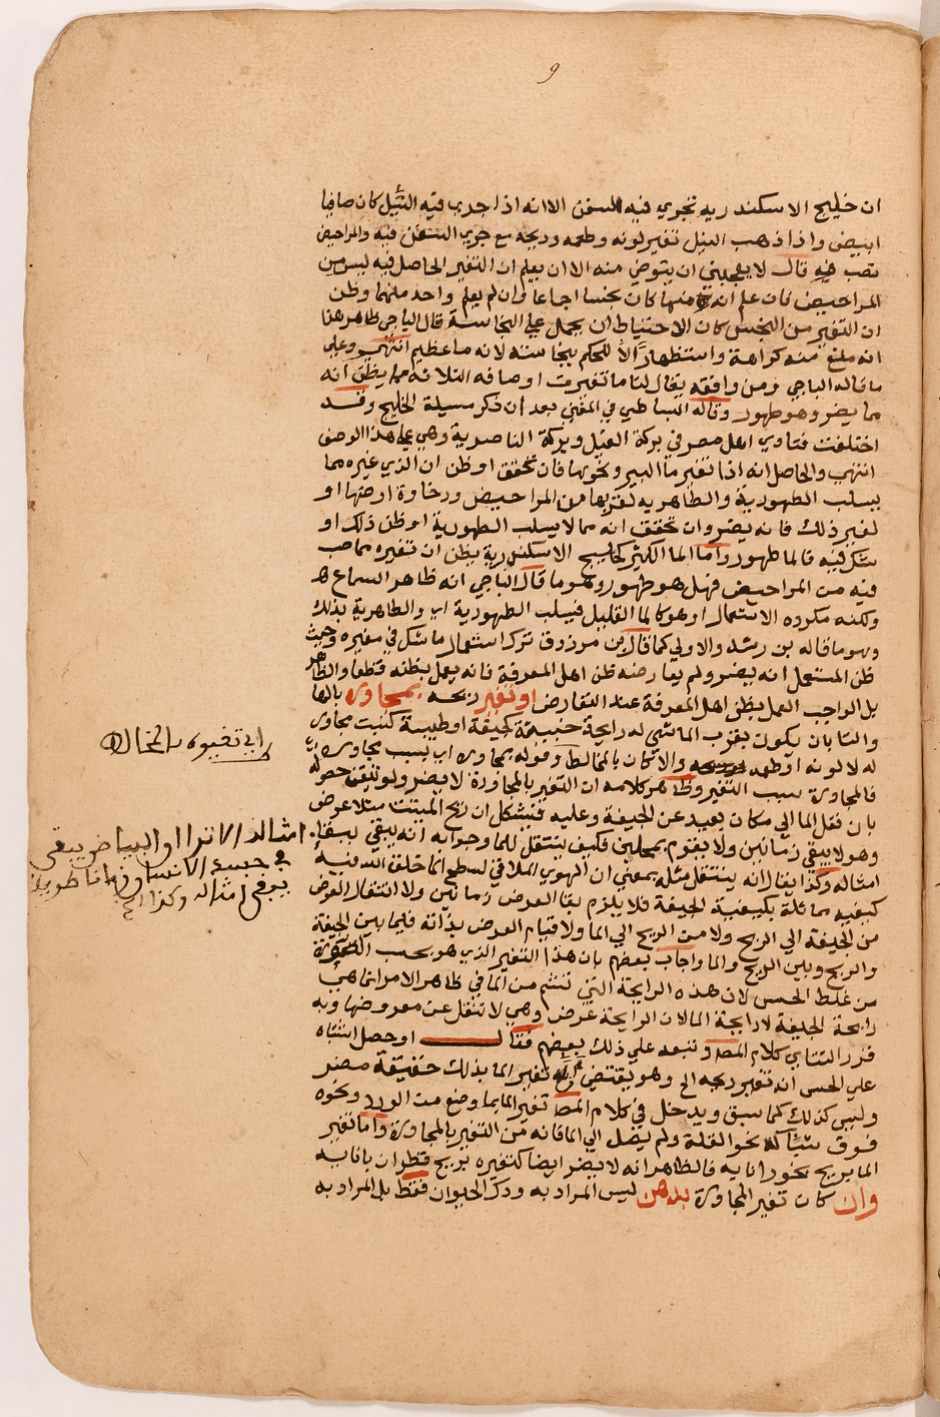 9
ان خليج الاسكندريه تجري فيه السفن الا انه اذا جري فيه النيل كان صافيا
ابيض واذا ذهب النيل تغير لونه وطعمه وريحه مع جري السفن فيه والمراحيض
تصب فيه قال لا يعجبني ان يتوضي منه الا ان يعلم ان التغير الحاصل فيه ليس من
المراحيض فان علم انه منها كان نجسا اجماعا وان لم يعلم واحد منهما وظن
ان التغير من النجس كان الاحتياط ان يحمل علي النجاسة قال الباجي ظاهر هذا
انه منع منه كراهة واستظهارا لا للحكم بنجاسته لانه ماء عظيم انتهي وعلي
ما قاله الباجي ومن وافقه يقال لنا ما تغيرت اوصافه الثلاثه مما يظن انه
مما يضر وهو طهور وقاله البساطي في المغني بعد ان ذكر مسيلة الخليج وقد
اختلفت فتاوي اهل مصر في بركة الفيل وبركة الناصرية وهي علي هذا الوصف
انتهي والحاصل انه اذا تغير ما البير ونحوها فان تحقق او ظن ان الذي غيره مما
يسلب الطهورية والطاهرية لقربها من المراحيض ورخاوة ارضها او
لغير ذلك فانه يضر وان تحقق انه مما لا يسلب الطهورية او ظن ذلك او
شك فيه فالما طهور واما الما الكثير كخليج الاسكندرية يظن ان تغيره مما صب
فيه من المراحيض فهل هو طهور وهو ما قال الباجي انه ظاهر السماع
ولكنه مكروه الاستعمال او هو كالما القليل فيسلب الطهورية اي والطاهرية بذلك
وهو ما قاله بن رشد والاولي كما قال بن مرزوق ترك استعمال ما شك في مغيره وحيث
ظن المستعمل انه يضر ولم يعارضه ظن اهل المعرفة فانه يعمل بظنه قطعا والظاهر
بل الواجب العمل بظن اهل المعرفة عند التعارض او تغير ريحه بمجاوره بالها
والتا بان يكون بقرب الما شي له رايحة خبيثة كجيفة او طيبة كنبت مجاور
له لا لونه او طعمه والا كان بالمخالط وقوله بمجاوره اي بسبب مجاوره اي
فالمجاورة سبب التغير وظاهر كلامه ان التغير بالمجاورة لا يضر ولو تيقن حصوله
بان نقل الما الي مكان بعيد عن الجيفة وعليه فيشكل ان ريح الميتة مثلا عرض
وهو لا يبقي زمانين ولا يقوم بمحلين فكيف ينتقل للما وجوابه انه يبقي ببقاء
امثاله وكذا يقال انه ينتقل مثله بمعني ان الهوي الملاقي لسطح الما خلق الله فيه
كيفيه مماثلة بكيفية الجيفة فلا يلزم بقا العرض زمانين ولا انتقال العرض
من الجيفة الي الريح ولا من الريح الي الما ولا قيام العرض بذاته فيما بين الجيفة
والريح وبين الريح والما واجاب بعضهم بان هذا التغير الذي هو بحسب الصورة
من غلط الحس لان هذه الرايحة التي تنشم من الما في ظاهر الامر انما هي
رايحة الجيفة لا رايحة الما لان الرايحة عرض وهي لا تنتقل عن معروضها وبه
قرر التتاي كلام المص وتبعه علي ذلك بعضهم فقال او حصل اشتباه
علي الحس انه تغير ريحه الخ وهو يقتضي تغير الما بذلك حقيقة مضر
وليس كذلك كما سبق ويدخل في كلام المص تغير الما بما وضع من الورد ونحوه
فوق شباك نحو القلة ولم يصل الي الما فانه من التغير بالمجاورة واما تغير
الما بريح بخور انايه فالظاهر انه لا يضر ايضا كتغيره بريح قطران باناييه
وان كان تغير المجاورة بدهن ليس المراد به ودك الحيوان فقط بل المراد به
اي تغيره بالمخالط
امثاله الانرا اول البياض يبقي
في جسد الانسان زمانا طويلا
يوفي امثاله وكذا الخ